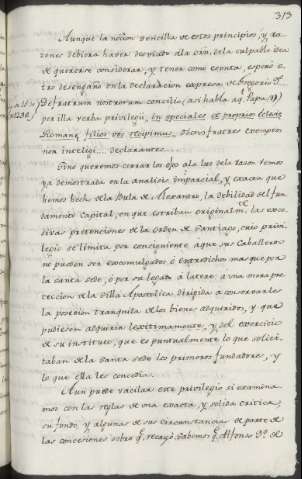 313
Aunque la nocion sencilla de estos principios, y ra-
zones debiera haver desviado ála orn. dela culpable idea
de quererse considerar, y tener como esenta, esperó
tro desengaño en la declaracion expresa de Gregorio 9.º
De fratrum nostrorum concilio, (asi habla aq.l Papa)
per illa verba privilegii, in speciales et proprios Eclesiæ
Romanæ filios vos recipimus, dictos fratres exemptos
non intelligi... declaramus...
Sino queremos cerrar los ojos ala luz dela razon tenemos
ya demostrada en la analisis imparcial, y exacta que
hemos hecho dela Bula de Alexandro, la debilidad del fun-
damento capital, en que estriban originalm.te las exce-
sivas pretenciones de la Orden de Santiago, cuio privi-
legio se limita por consiguiente aque sus Caballeros
no puedan ser excomulgados ó entredichos mas que por
la santa sede, ó por su legado á latere, á una mera pro-
teccion de la Silla Apostolica dirigida á conservarles
la posesion tranquila de los bienes adquiridos, y que
pudiesen adquirir lexitimamente, y del exercicio
de su instituto, que es puntualmente lo que solici-
taban de la Santa sede los primeros fundadores, y
lo que ella les concedia.
Aun puede vacilar este privilegio si examina-
mos con las reglas de una exacta, y solida critica,
su fondo, y algunas de sus circunstancias de parte de
las concesiones sobre q.e recayó. Sabemos q.e Alfonso 9.º de